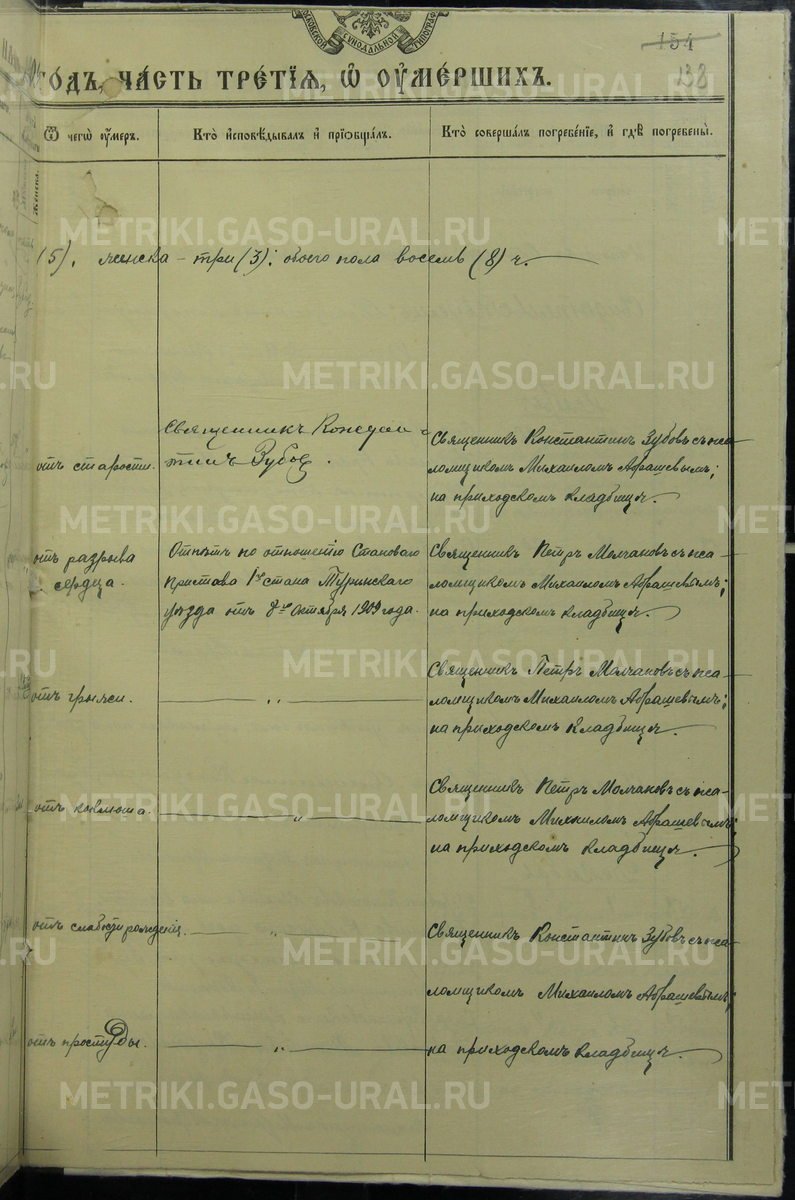 МОСКОВСКОЙ СѴНОДАЛЬНОЙ ТИПОГРАФ
154
138
го́дъ, ча́сть тре́тїѧ, ѡ҆ ᲂу҆ме́ршихъ.
Ѿ чегѡ̀ ᲂу҆́меръ.
Кто̀ и҆сповѣ́дывалъ и҆ прїѡбща́лъ.
Кто̀ соверша́лъ погребе́нїе, и҆ гдѣ̀ погребены̀.
Женска.
METRIKI.GASO-URAL.RU
(5), женска - три (3); обоего пола восемь (8) ч.
отъ старости.
Священникъ Констан-
тинъ Зубов.
Священникъ Константинъ Зубовъ съ пса-
ломщикомъ Михаиломъ Абрашевымъ;
на приходскомъ кладбищѣ.
отъ разрыва
сердца.
Отпѣтъ по отношенію Становаго
Пристава 1го стана Туринскаго
уѣзда отъ 8го Октября 1909 года.
Священникъ Петръ Молчановъ съ пса-
ломщикомъ Михаиломъ Абрашевымъ;
на приходскомъ кладбищѣ.
отъ грыжи.
— „ —
Священникъ Петръ Молчановъ съ пса-
ломщикомъ Михаиломъ Абрашевымъ;
на приходскомъ кладбищѣ.
отъ коклюша.
— „ —
Священникъ Петръ Молчановъ съ пса-
ломщикомъ Михаиломъ Абрашевымъ;
на приходскомъ кладбищѣ.
отъ слабости рожденія.
— „ —
Священникъ Константинъ Зубовъ съ пса-
ломщикомъ Михаиломъ Абрашевымъ;
отъ простуды.
— „ —
на приходскомъ кладбищѣ.